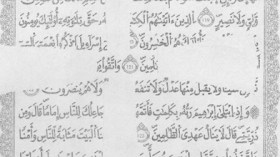 وَلِيٍّ وَلَا نَصِيرٍ ﴿١٢٠﴾ الَّذِينَ آتَيْنَاهُمُ حَقَّ تِلَاوَتِهِ أُولَئِكَ يُؤْمِنُونَ
هُمُ الْخَاسِرُونَ ﴿١٢١﴾ إِسْرَائِيلَ اذْكُرُوا
وَاتَّقُوا
وَلَا يُقْبَلُ مِنْهَا عَدْلٌ وَلَا وَلَا هُمْ يُنْصَرُونَ
وَإِذِ ابْتَلَى إِبْرَاهِيمَ رَبُّهُ بِكَلِمَاتٍ فَأَتَمَّهُ جَاعِلُكَ لِلنَّاسِ إِمَامًا قَالَ وَمِنْ
ذُرِّيَّتِي قَالَ لَا يَنَالُ عَهْدِي الظَّالِمِينَ الْبَيْتَ مَثَابَةً لِلنَّاسِ وَأَمْنًا